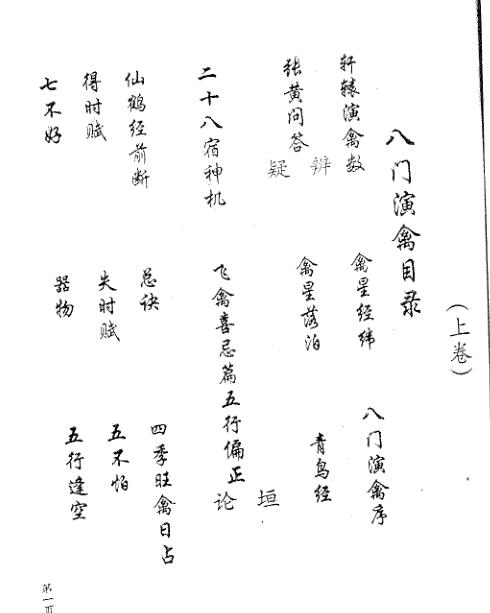 (上卷)
八门演禽目录
轩辕演禽数 禽星经纬 八门演禽序
张黄问答 禽星落泊 青鸟经
辨疑
二十八宿神机 飞禽喜忌篇 五行偏正
垣论
仙鹤经前断 总诀 四季旺禽日占
得时赋 失时赋 五不怕
七不好 器物 五行逢空
第一页